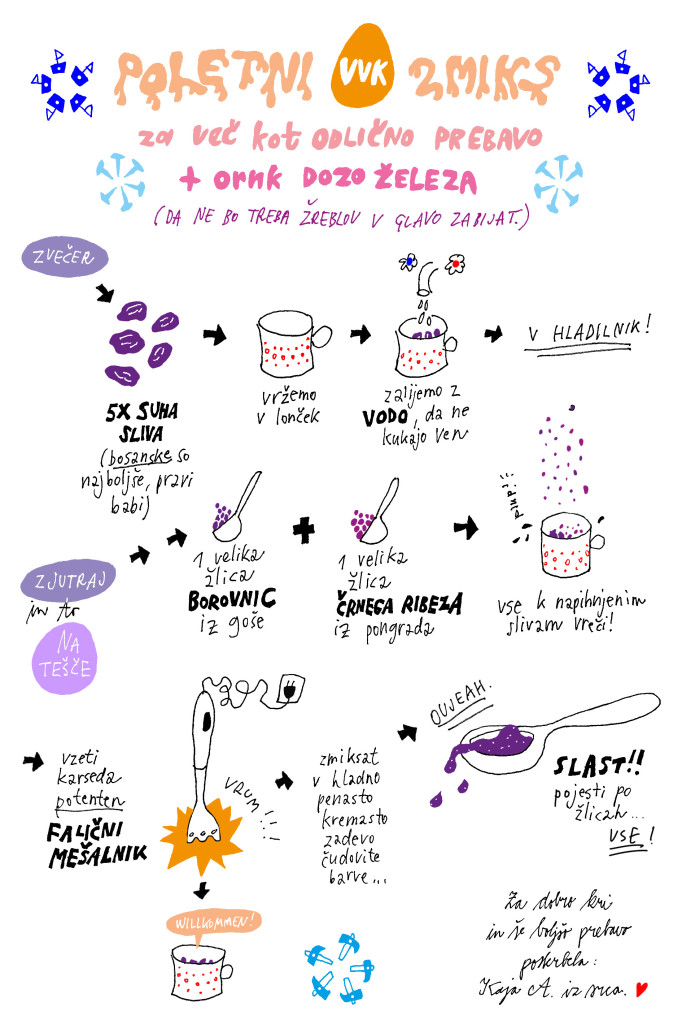 POLETNI VVK ZMIKS
za več kot ODLIČNO PREBAVO
+ ornk DOZO ŽELEZA
(DA NE BO TREBA ŽREBLOV V GLAVO ZABIJAT.)
ZVEČER
5X SUHA
SLIVA
(bosanske so
najboljše, pravi
babi)
vržemo
v lonček
zalijemo z
VODO, da ne
kukajo ven
V HLADILNIK!
ZJUTRAJ
in to
NA
TEŠČE
1 velika
žlica
BOROVNIC
iz goše
1 velika
žlica
ČRNEGA RIBEZA
iz pongrada
PLNP!!!
vse k napihnjenim
slivam vreči!
vzeti
karseda
potenten
FALIČNI
MEŠALNIK
VRUM!!!
WILLKOMMEN!
zmiksat
v hladno
penasto
kremasto
zadevo
čudovite
barve...
OUJEAH.
SLAST!!
pojesti po
žlicah...
VSE!
Za dobro kri
in še boljšo prebavo
poskrbela:
Kaja A. iz srca.